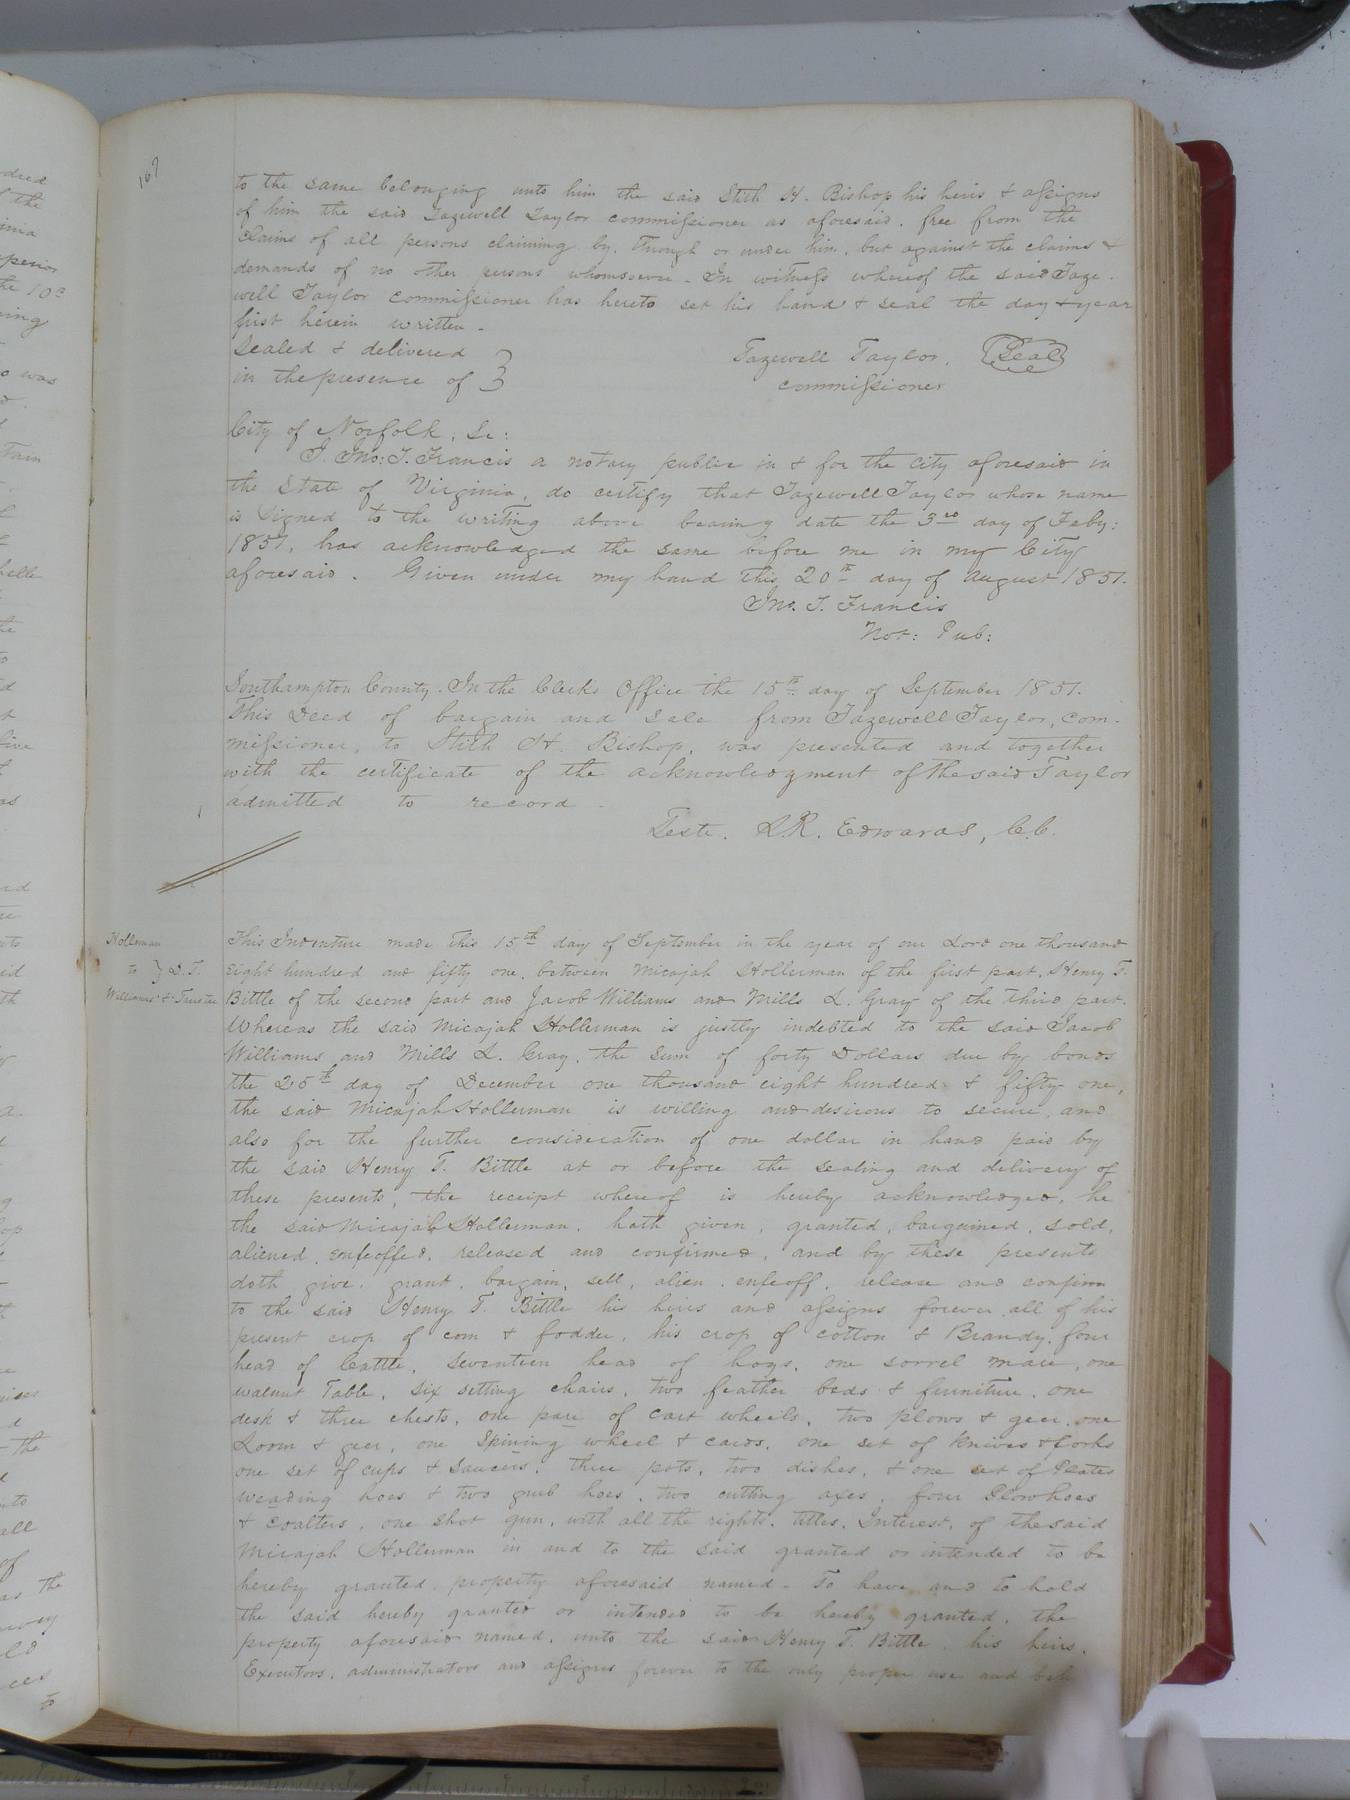 167
to the same belonging unto him the said Stith H. Bishop his heirs & assigns
of him the said Tazewell Taylor commissioner as aforesaid. free from the
claims of all persons claiming by, through or under him, but against the claims &
demands of no other persons whomsoever. In witness whereof the said Taze-
well Taylor commissioner has hereto set his hand & seal the day & year
first herein written.
Sealed & delivered
in the presence of }
Tazewell Taylor. Seal
commissioner
City of Norfolk, Sc:
I. Jno: T. Francis a notary public in & for the City aforesaid in
the State of Virginia, do certify that Tazewell Taylor whose name
is signed to the writing above bearing date the 3rd day of Feby:
1851, has acknowledged the same before me in my City
aforesaid. Given under my hand this 20th day of August 1851.
Jno. T. Francis
Not: Pub:
Southampton County. In the Clerks Office the 15th day of September 1851.
This Deed of bargain and sale from Tazewell Taylor, com-
missioner, to Stith H. Bishop, was presented and together
with the certificate of the acknowledgment of the said Taylor
admitted to record.
Teste. L.R. Edwards, C.C.
Holleman
to } D.T.
Williams' &c Trustee
This Indenture made this 15th day of September in the year of our Lord one thousand
eight hundred and fifty one, between Micajah Hollerman of the first part, Henry T.
Bittle of the second part and Jacob Williams and Mills L. Gray of the third part.
Whereas the said Micajah Hollerman is justly indebted to the said Jacob
Williams and Mills L. Gray, the sum of forty Dollars due by bonds
the 25th day of December one thousand eight hundred & fifty one,
the said Micajah Hollerman is willing and desirous to secure, and
also for the further consideration of one dollar in hand paid by
the said Henry T. Bittle at or before the sealing and delivery of
these presents, the receipt whereof is hereby acknowledged, he
the said Micajah Hollerman, hath given, granted, bargained, sold,
aliened, enfeoffed, released and confirmed, and by these presents
doth give, grant, bargain, sell, alien, enfeoff, release and confirm
to the said Henry T. Bittle his heirs and assigns forever all of his
present crop of corn & fodder, his crop of cotton & Brandy, four
head of Cattle, seventeen head of hogs, one sorrel mare, one
walnut Table, six setting chairs, two feather beds & furniture, one
desk & three chests, one pare of cart wheels, two plows & geer, one
Loom & geer, one Spining wheel & cards, one set of knives & forks
one set of cups & saucers, three pots, two dishes, & one set of Plates
weading hoes & two grub hoes, two cutting axes, four Plowhoes
& Coalters, one shot gun, with all the rights, titles, Interest, of the said
Micajah Hollerman in and to the said granted or intended to be
hereby granted property aforesaid named. To have and to hold
the said hereby granted or intended to be hereby granted, the
property aforesaid named, unto the said Henry T. Bittle, his heirs,
Executors, administrators and assigns forever to the only proper use and